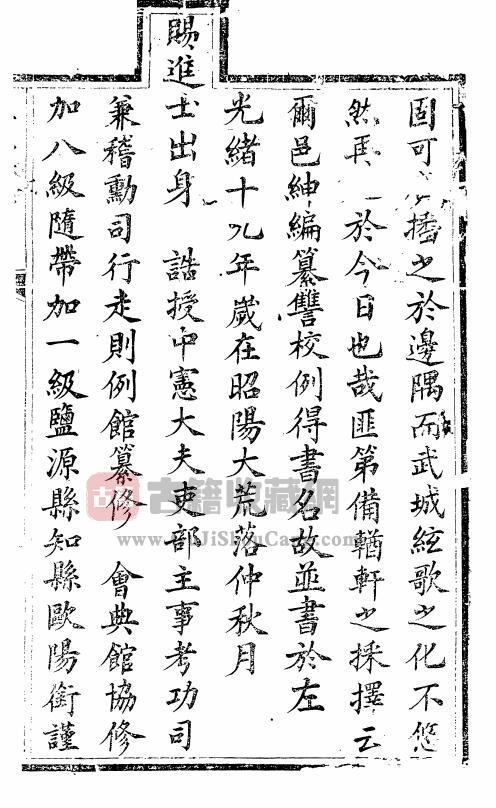 固可播之於邊隅而武城絃歌之化不悠
然再於今日也哉匪第備輶軒之採擇云
爾邑紳編纂讐校例得書名故並書於左
光緒十九年歲在昭陽大荒落仲秋月
賜進士出身 誥授中憲大夫吏部主事考功司
兼稽勳司行走則例館纂修 會典館協修
加八級隨帶加一級鹽源縣知縣歐陽銜謹
古籍收藏網